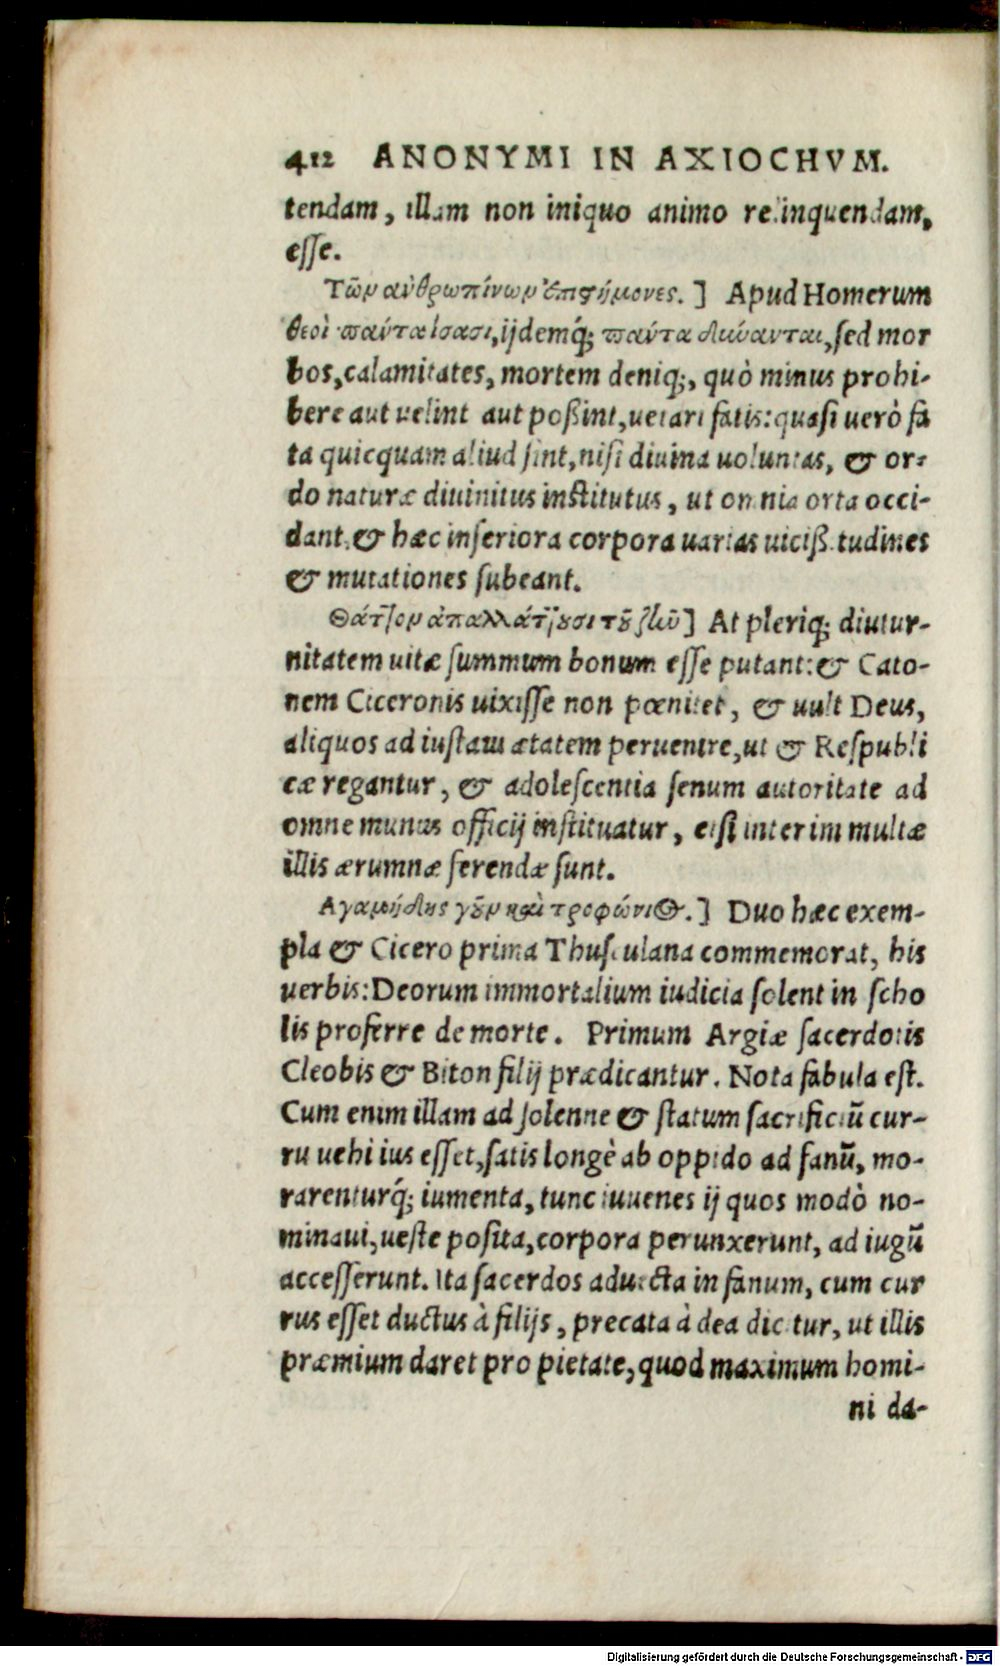 412 ANONYMI IN AXIOCHVM.
tendam, illam non iniquo animo relinquendam,
esse.
Τῶν ἀνθρωπίνων ἐπιστήμονες.] Apud Homerum
θεοὶ πάντα ἴσασι, ijdemq́; πάντα δύνανται, sed mor
bos, calamitates, mortem deniq;, quò minus prohi-
bere aut uelint aut poßint, uetari fatis: quasi uerò fa
ta quicquam aliud sint, nisi diuina uoluntas, & or-
do naturæ diuinitus institutus, ut omnia orta occi-
dant, & hæc inferiora corpora uarias uicißitudines
& mutationes subeant.
Θάττον ἀπαλλάττουσι τοῦ ζῆν] At pleriq; diutur-
nitatem uitæ summum bonum esse putant: & Cato-
nem Ciceronis uixisse non pœnitet, & uult Deus,
aliquos ad iustam ætatem peruenire, ut & Respubli
cæ regantur, & adolescentia senum autoritate ad
omne munus officij instituatur, etsi interim multæ
illis ærumnæ ferendæ sunt.
Αγαμήδης γοῦν καὶ τροφώνιος.] Duo hæc exem-
pla & Cicero prima Thusculana commemorat, his
uerbis: Deorum immortalium iudicia solent in scho
lis proferre de morte. Primum Argiæ sacerdotis
Cleobis & Biton filij prædicantur. Nota fabula est.
Cum enim illam ad solenne & statum sacrificiũ cur-
ru uehi ius esset, satis longè ab oppido ad fanũ, mo-
rarenturq́; iumenta, tunc iuuenes ij quos modò no-
minaui, ueste posita, corpora perunxerunt, ad iugũ
accesserunt. Ita sacerdos aduecta in fanum, cum cur
rus esset ductus à filijs, precata à dea dicitur, ut illis
præmium daret pro pietate, quod maximum homi-
ni da-
Digitalisierung gefördert durch die Deutsche Forschungsgemeinschaft - DFG